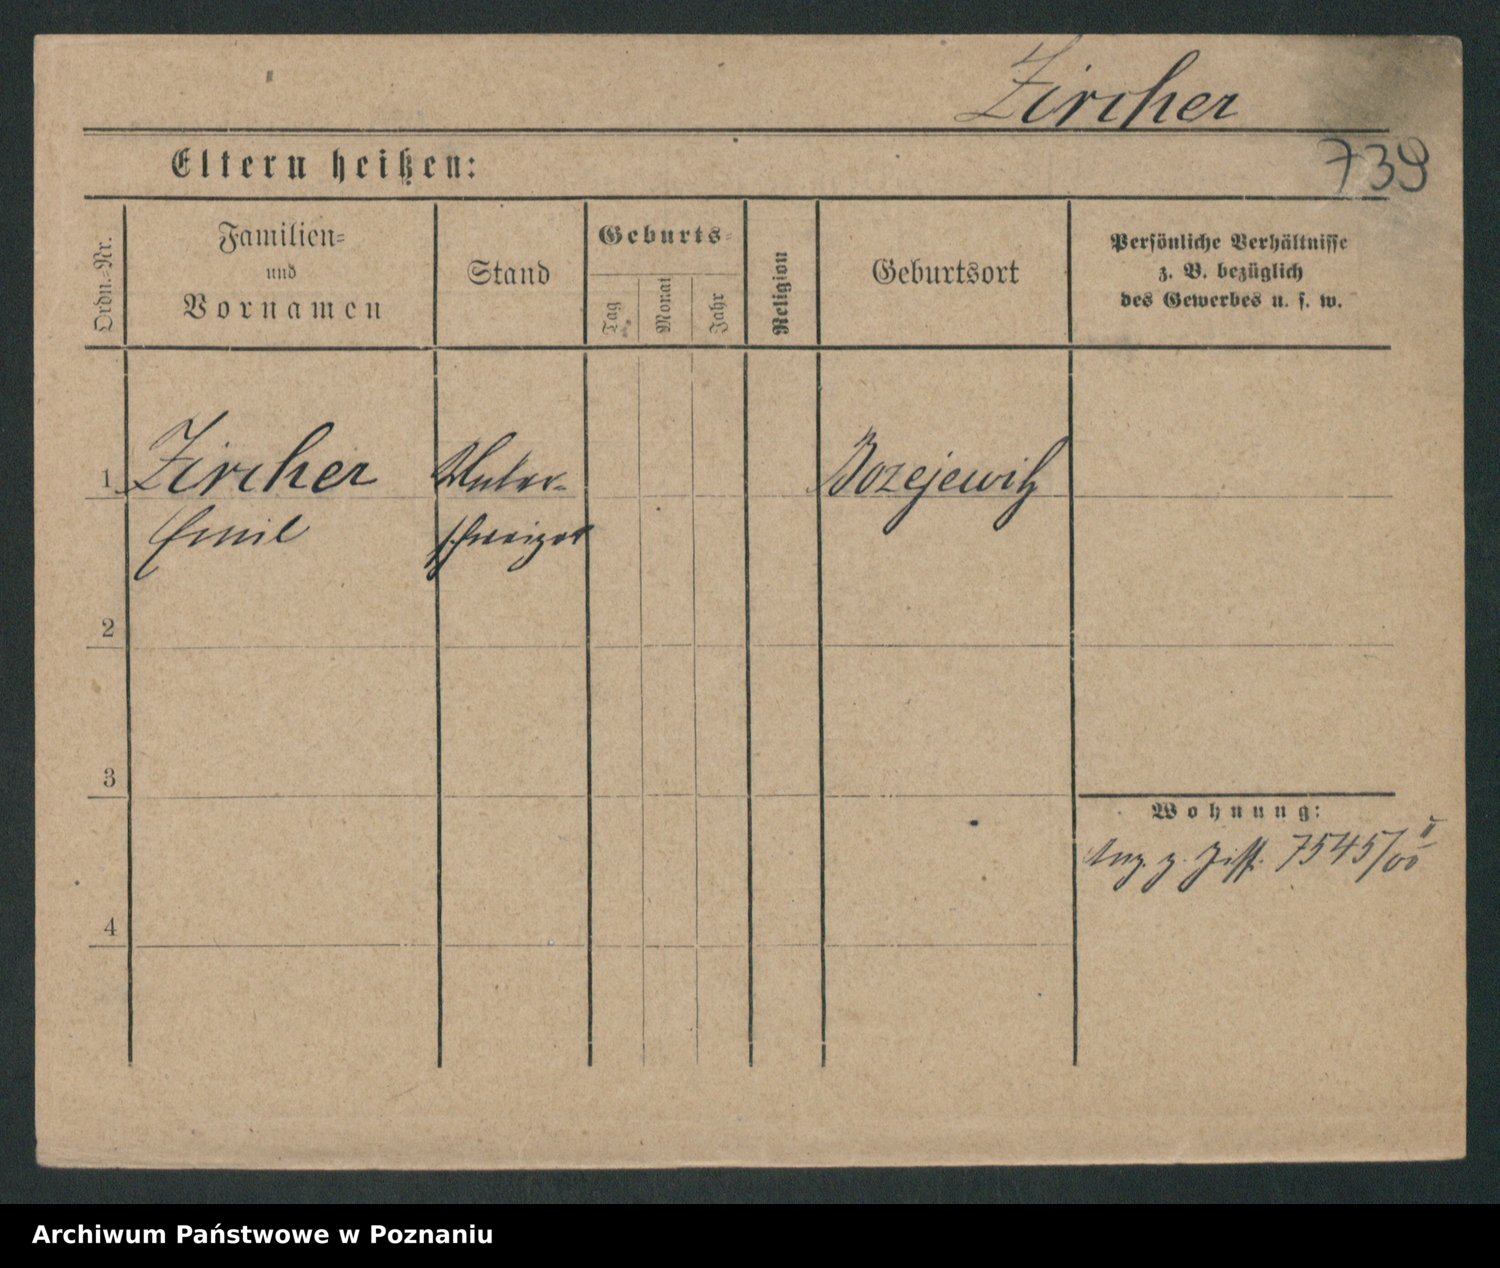 Zircher
739
Eltern heißen:
Ordn.-Nr.
Familien-
und
Vornamen
Stand
Geburts-
Tag
Monat
Jahr
Religion
Geburtsort
Persönliche Verhältnisse
z. B. bezüglich
des Gewerbes u. s. w.
1 Zircher Unter- Bozejewitz
Emil schweizer
2
3
Wohnung:
7545/00 II
4
Archiwum Państwowe w Poznaniu